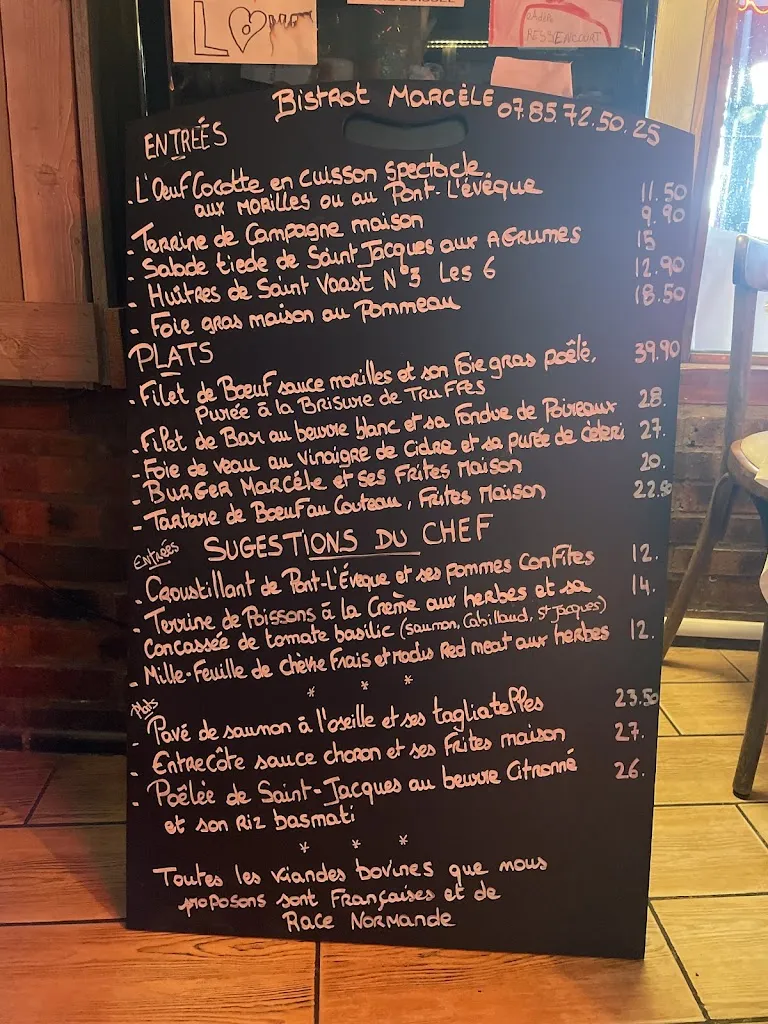 L
Adèle
RESSENCOURT
Bistrot Marcèle 07.85.72.50.25
ENTRÉES
- L'Oeuf Cocotte en cuisson spectacle
aux morilles ou au Pont-L'évêque 11.50
- Terrine de Campagne maison 9.90
- Salade tiede de Saint Jacques aux AGRUMES 15
- Huîtres de Saint Vaast N°3 Les 6 12.90
- Foie gras maison au Pommeau 18.50
PLATS
- Filet de Bœuf sauce morilles et son Foie gras poêlé, 39.90
Purée à la Brisure de Truffes
- Filet de Bar au beurre blanc et sa Fondue de Poireaux 28.
- Foie de veau au vinaigre de Cidre et sa purée de céleri 27.
- BURGER Marcèle et ses Frites Maison 20.
- Tartare de Boeuf au Couteau, Frites Maison 22.50
SUGESTIONS DU CHEF
Entrées
- Croustillant de Pont-L'Éveque et ses pommes Confites 12.
- Terrine de Poissons à la Crème aux herbes et sa 14.
Concassée de tomate basilic (saumon, Cabillaud, St Jacques)
- Mille-Feuille de chèvre Frais et radis Red meat aux herbes 12.
* * *
Plats
- Pavé de saumon à l'oseille et ses tagliatelles 23.50
- Entrecôte sauce choron et ses Frites maison 27.
- Poêlée de Saint-Jacques au beurre Citronné 26.
et son Riz basmati
* * *
Toutes les viandes bovines que nous
proposons sont Françaises et de
Race Normande